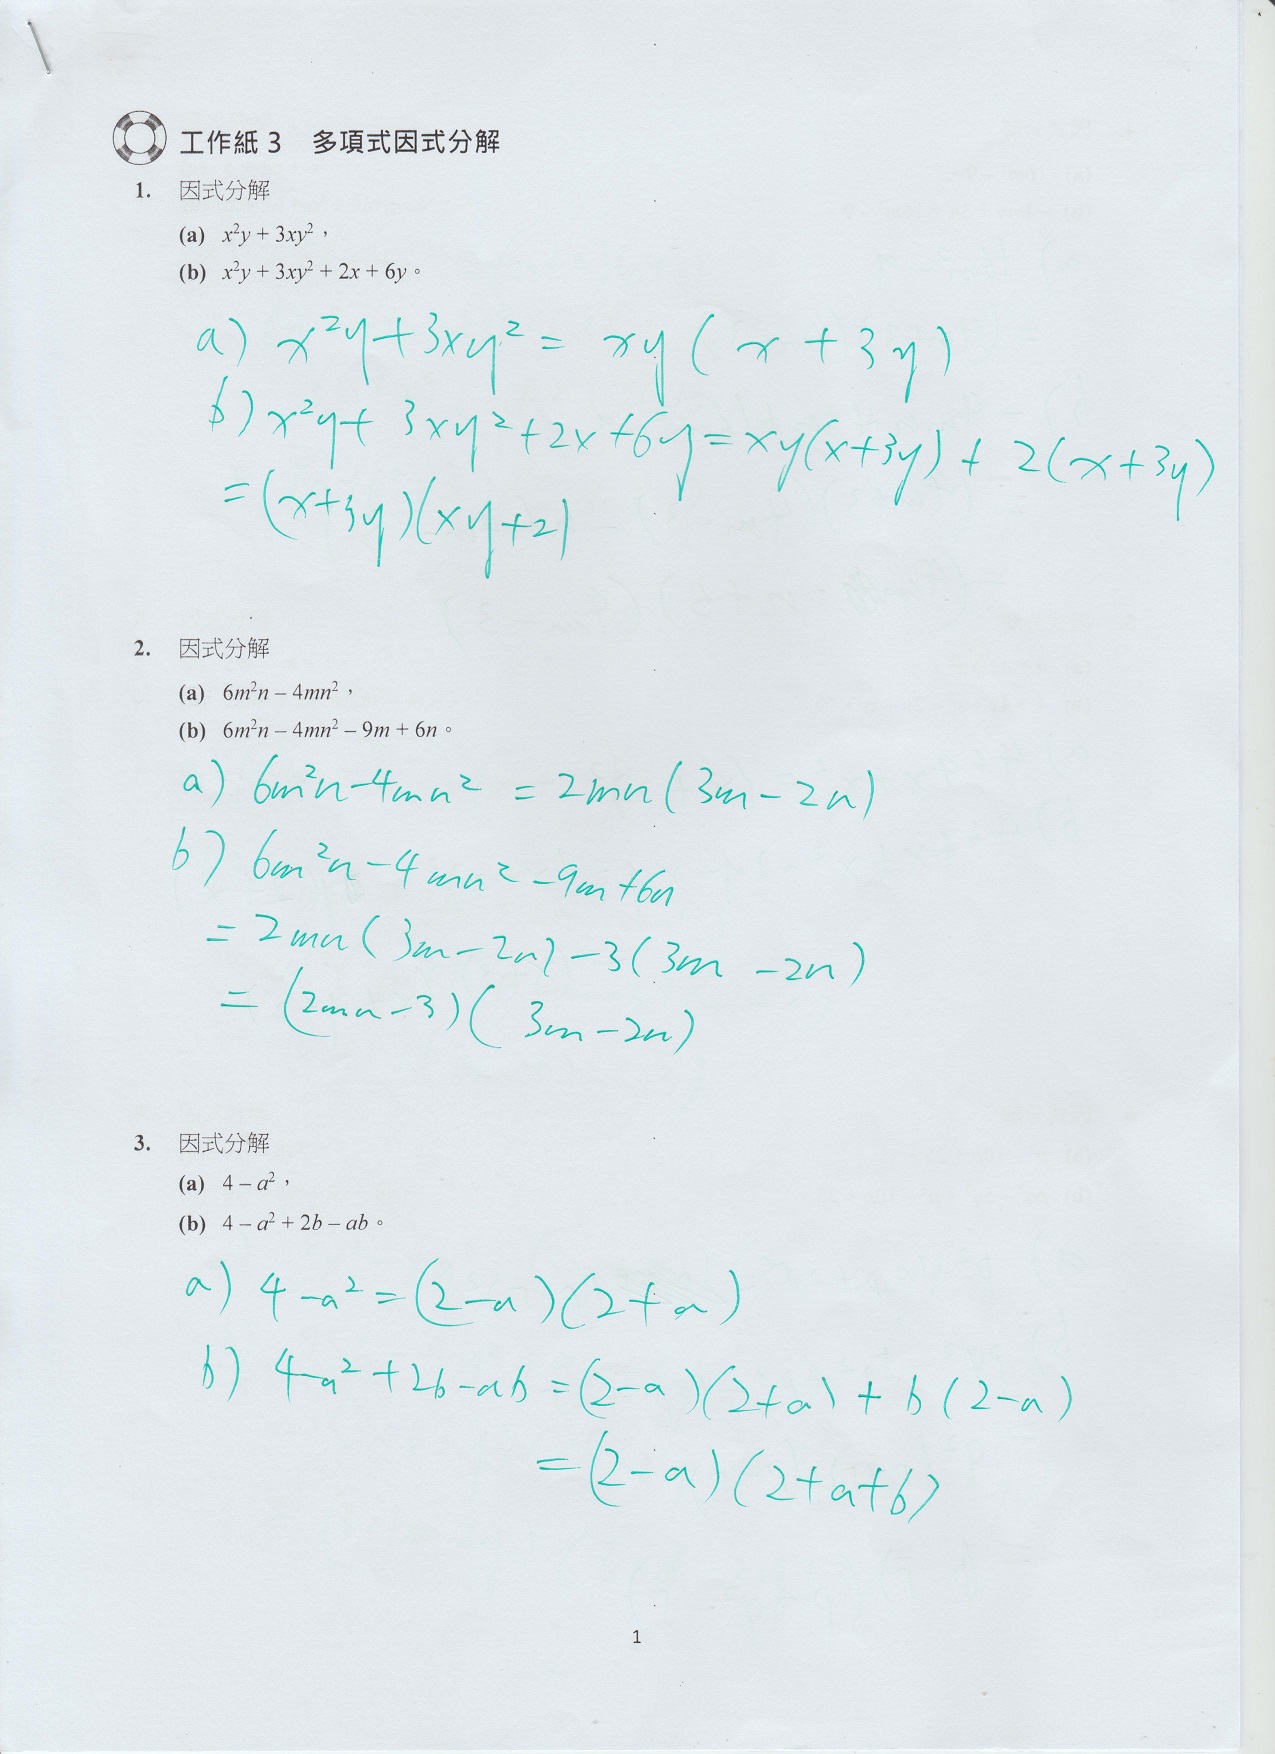 工作紙 3　多項式因式分解
1. 因式分解
(a) x²y + 3xy²，
(b) x²y + 3xy² + 2x + 6y。
a) x²y+3xy² = xy(x+3y)
b) x²y+3xy²+2x+6y=xy(x+3y)+2(x+3y)
=(x+3y)(xy+2)
2. 因式分解
(a) 6m²n – 4mn²，
(b) 6m²n – 4mn² – 9m + 6n。
a) 6m²n-4mn² = 2mn(3m-2n)
b) 6m²n-4mn²-9m+6n
= 2mn(3m-2n)-3(3m-2n)
= (2mn-3)(3m-2n)
3. 因式分解
(a) 4 – a²，
(b) 4 – a² + 2b – ab。
a) 4-a²=(2-a)(2+a)
b) 4-a²+2b-ab=(2-a)(2+a)+b(2-a)
=(2-a)(2+a+b)
1